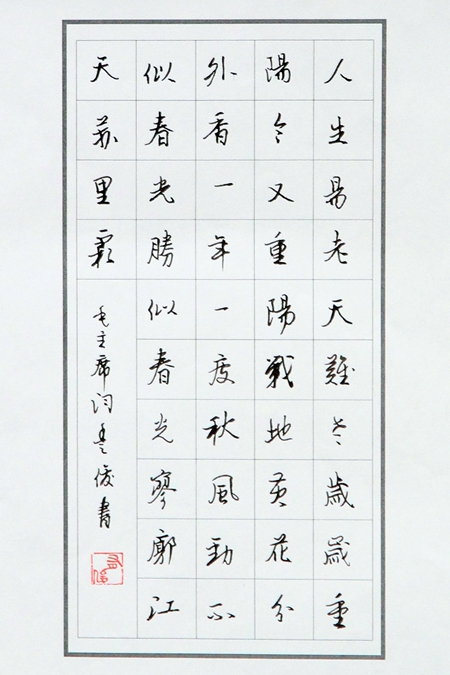 人生易老天難老歲歲重
陽今又重陽戰地黃花分
外香一年一度秋風勁不
似春光勝似春光廖廓江
天萬里霜
毛主席词俊書